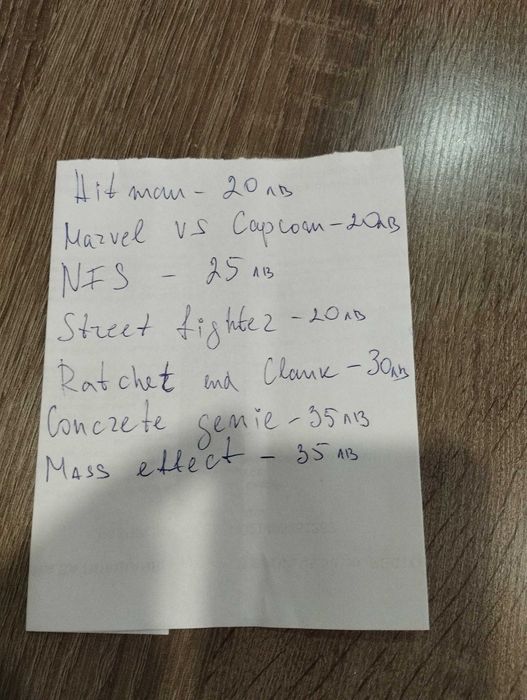 Hitman - 20 лв
Marvel vs Capcom - 20лв
NFS - 25 лв
Street fighter - 20лв
Ratchet and Clank - 30лв
Concrete genie - 35 лв
Mass effect - 35 лв